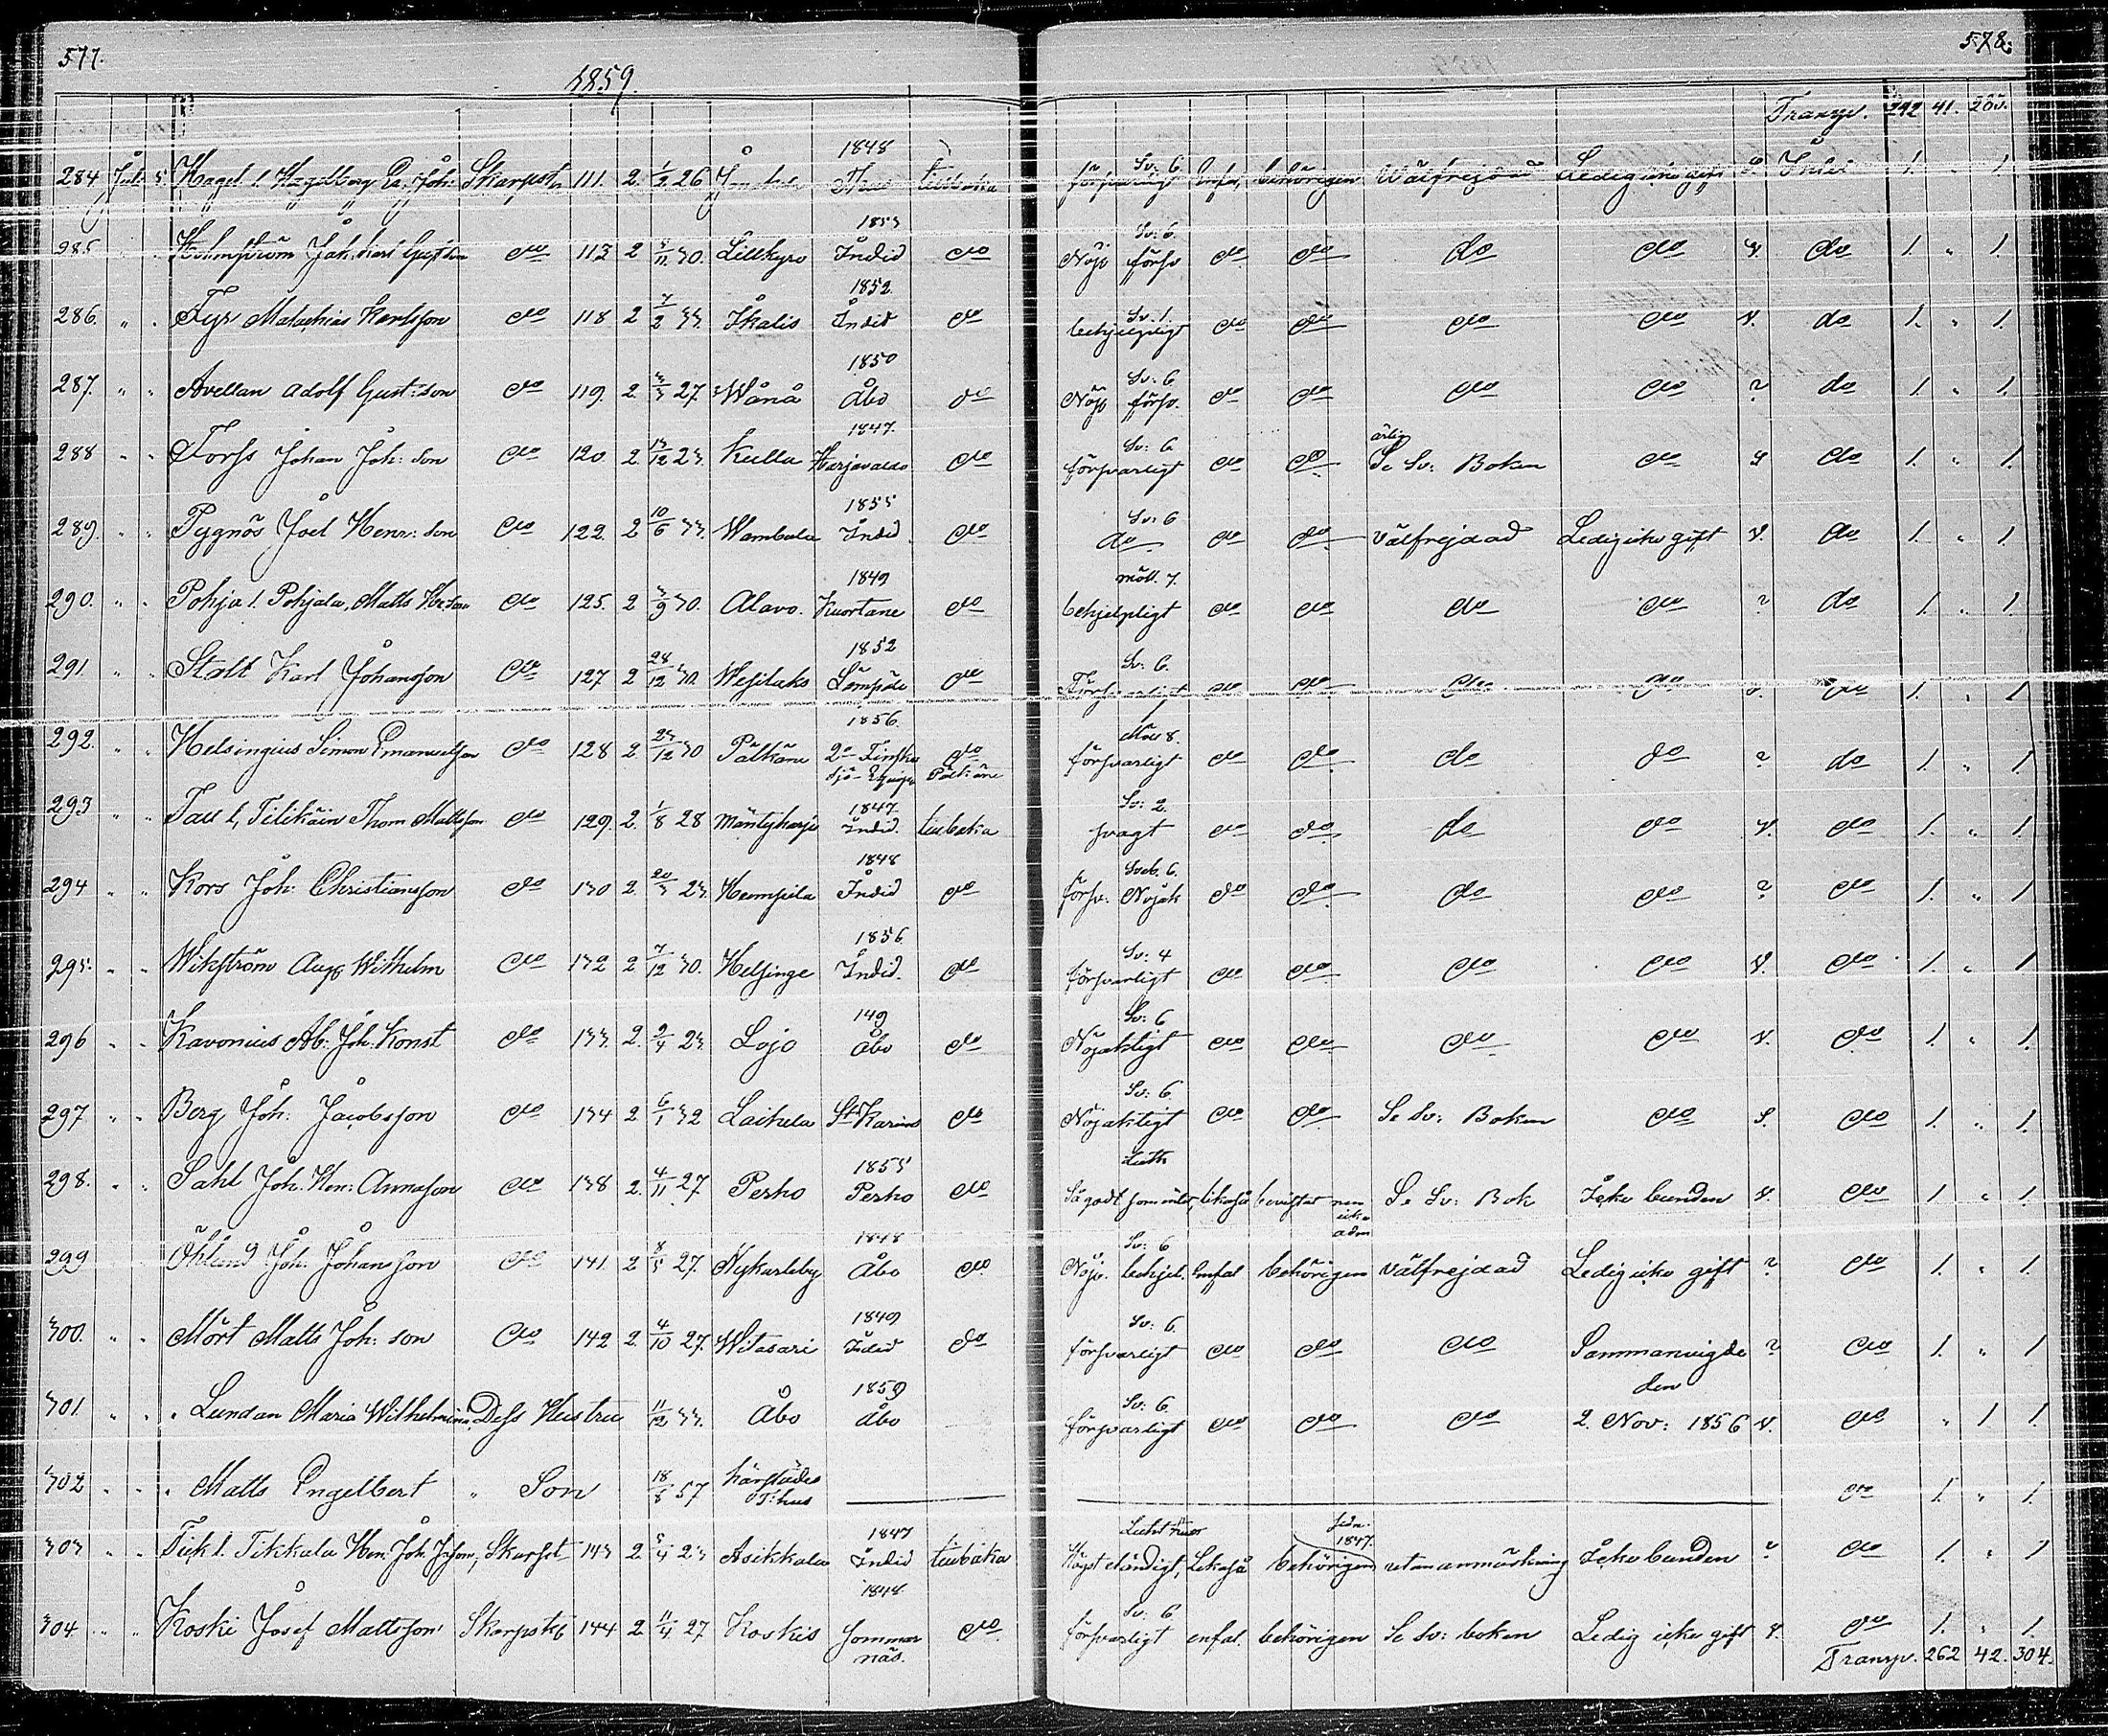 577.
578.
1859.
Transp. 242 41. 283.
284 Juli 5. Hagel l. Hagelberg Joh: Skarpsk 111. 2. 1/2 26 1848 tillbaka Sv: 6. försvarligt behörigen Wälfrejdad Ledig icke gift 1. " 1.
285 " " Holmström Joh. Karl Gust:son do 113 2 30. Lillkyro 1853 Indid do Nöjv förv Sv: 6. do do do do v. do 1. " 1.
286. " " Fyr Malachias Karlsson do 118 2 7/2 33. Ikalis 1852. Indid do Sv: 1. behjelpligt do do do do v. do 1. " 1.
287. " " Avellan Adolf Gust:son do 119. 2. 27. Wånå 1850 Åbo do Sv: 6 Nöjv förv. do do do do ? do 1. " 1.
288 " " Forss Johan Joh: son do 120. 2. 13/12 23. Kulla 1847. Harjavalda do Sv: 6 försvarligt do do ärlig Se Sv: Boken do do 1. " 1.
289. " " Pygnös Joel Henr: son do 122. 2 10/6 33. Wambula 1855 Indid do Sv: 6 do do do välfrejdad Ledig icke gift v. do 1. " 1.
290. " " Pohja l. Pohjala, Matts do 125. 2 3/9 30. Alavo. 1849 Kuortane do möll. 7. behjelpligt do do do do ? do 1. " 1.
291. " " Stolt Karl Johansson do 127 2 28/12 30. Wesilaks 1852 Lempäle do Sv: 6. Försvarligt do do do do do 1. " 1
292. " " Helsingius Simon Emanuelson do 128 2 23/12 30 Pälkäne 1856. 2a Finska Sjö-Equip do Pälkäne 8. försvarligt do do do do ? do 1. " 1.
293 " " Tau l, Tilikäin Thom Mattsson do 129. 2. 1/8 28 Mäntyharju 1847 Indid. tillbaka Sv: 2. svagt do do do do v. do 1. " 1
294 " " Kors Joh: Christiansson do 130 2. 20/3 23. Humppila 1848 Indid do Sveb. 6. förv. Nöjak do do do do ? do 1. " 1.
295. " " Wikström Aug. Wilhelm do 132 2 7/12 30. Helsinge 1856 Indid. do Sv: 4 försvarligt do do do do v. do 1. " 1
296 " " Kavonius Ab: Joh: Konst do 133. 2. 2/4 23. Lojo 149 Åbo do Sv: 6 Nöjaktigt do do do do v. do 1. " 1.
297 " " Berg Joh: Jacobsson do 134 2 6/1 32 Laihela St Karins do Sv: 6. Nöjaktigt do do Se Sv: Boken do do 1. " 1.
298. " " Sahl Joh. Hen: Annason do 138 2. 4/11 27. Perho 1855 Perho do Luth Så godt som intet, likaså bevistat men icke adm Se Sv: Bok Icke bunden v. do 1 " 1
299 " " Öhlund Joh: Johansson do 141. 2 8/5 27. Nykarleby 1848 Åbo do Sv: 6 Nöjv. behjel. enfal behörigen välfrejdad Ledig icke gift ? do 1. " 1
300. " " Mört Matts Joh: son do 142 2. 4/10 27. Witasari 1849 Indid do Sv: 6. försvarligt do do do Sammanvigde ? do 1. " 1
301 " " " Lundan Maria Wilhelmina, Dess Hustru 11/12 33. Åbo 1859 Åbo Sv: 6 försvarligt do do do den 2. Nov: 1856 v. do " 1 1.
302 " " " Matts Engelbert " Son 18/8 57 härstädes T:hus do 1. " 1.
303 " " Tick l. Tikkala Hen: Joh: Skarpsk 143 2. 5/4 23 Asikkala 1847 Indid tillbaka Högst eländigt, Likaså sedn. 1847. behörigen utan anmärkning Icke bunden ? do 1. " 1
304. " " Koski Josef Mattsson Skarpsk 144 2 11/4 27 Koskis 1848. Jommarnäs. do Sv: 6. försvarligt enfal. behörigen Se Sv: boken Ledig icke gift v. do 1. " 1.
Transp. 262 42. 304.